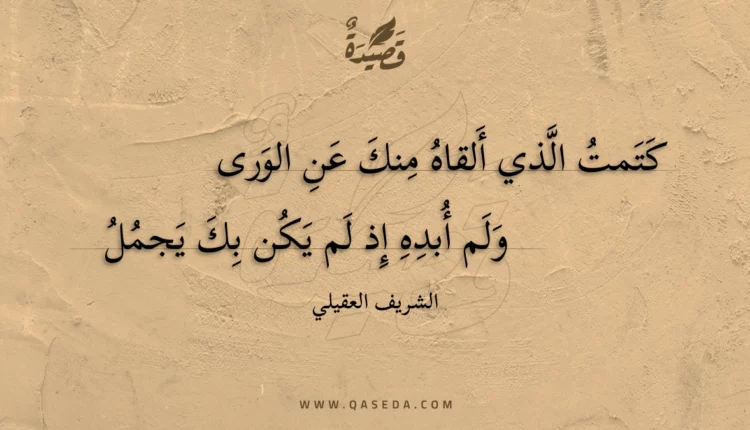 قَصِيدَةٌ
كَتَمتُ الَّذي أَلقاهُ مِنكَ عَنِ الوَرى
وَلَم أُبدِهِ إِذ لَم يَكُن بِكَ يَجمُلُ
الشريف العقيلي
WWW.QASEDA.COM